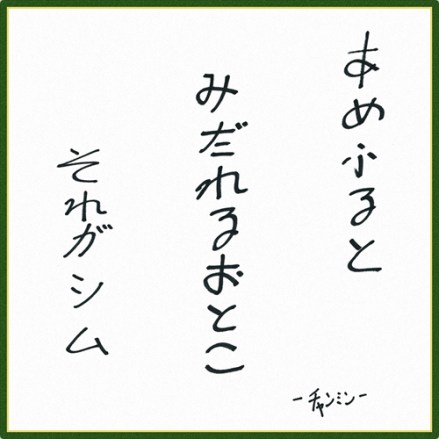 あめふると
みだれるおとこ
それがシム
－チャンミン－